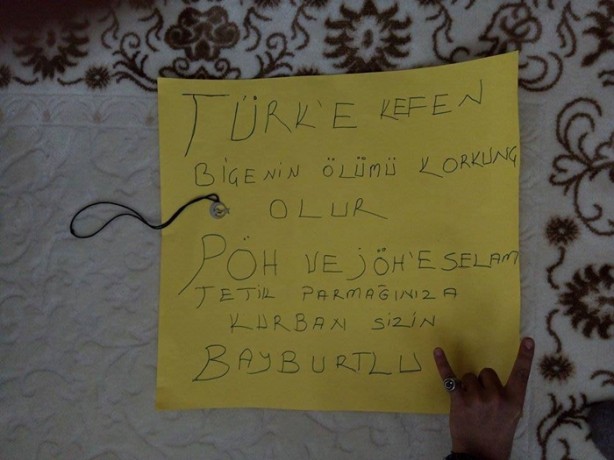 TÜRK'E KEFEN
BİÇENİN ÖLÜMÜ KORKUNÇ
OLUR
PÖH VE JÖH'E SELAM
TETİK PARMAĞINIZA
KURBAN SİZİN
BAYBURTLU